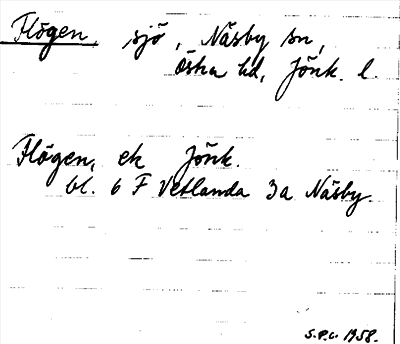 Flögen, sjö, Näsby sn,
Östra hd, Jönk. l.
Flögen, ek Jönk.
bl. 6 F Vetlanda 3a Näsby.
S.P.C. 1958.